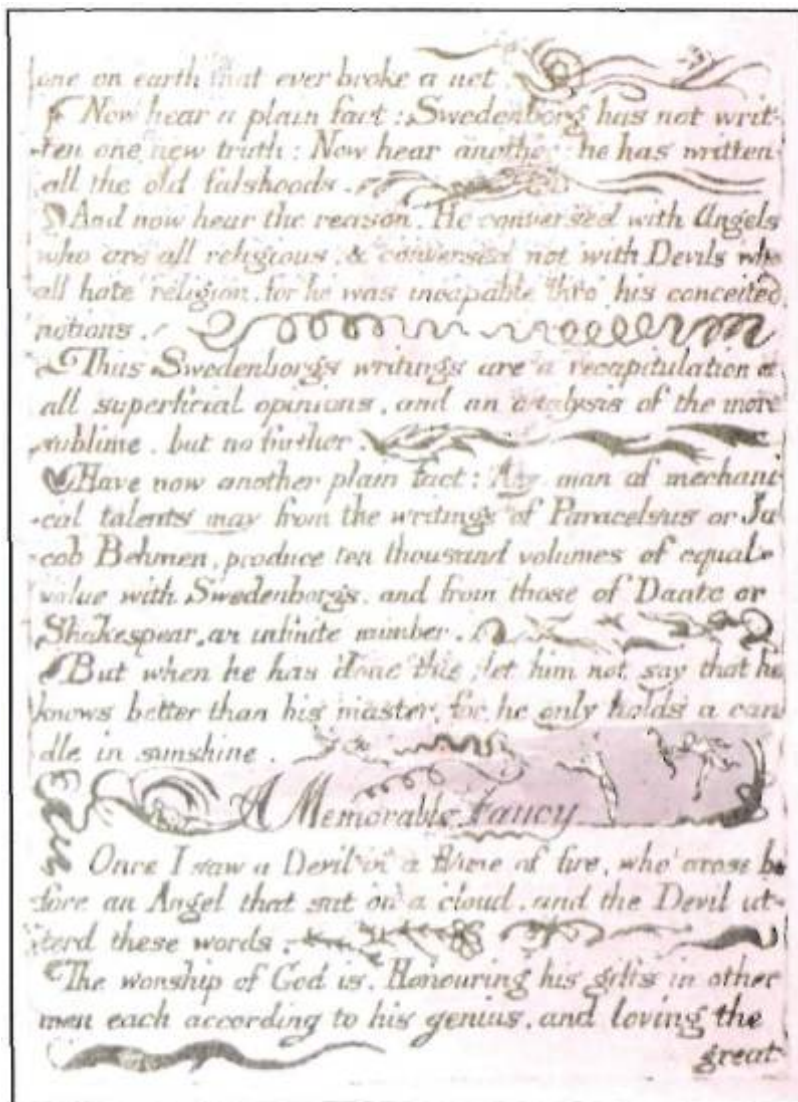 one on earth that ever broke a net.
Now hear a plain fact: Swedenborg has not writ-
-ten one new truth: Now hear another: he has written
all the old falshoods.
And now hear the reason. He conversed with Angels
who are all religious, & conversed not with Devils who
all hate religion, for he was incapable thro' his conceited
notions.
Thus Swedenborgs writings are a recapitulation of
all superficial opinions, and an analysis of the more
sublime, but no further.
Have now another plain fact: Any man of mechani
-cal talents may from the writings of Paracelsus or Ja
cob Behmen, produce ten thousand volumes of equal
value with Swedenborg's, and from those of Dante or
Shakespear, an infinite number.
But when he has done this, let him not say that he
knows better than his master, for he only holds a can
dle in sunshine.
A Memorable Fancy
Once I saw a Devil in a flame of fire, who arose be
fore an Angel that sat on a cloud, and the Devil ut-
terd these words.
The worship of God is, Honouring his gifts in other
men each according to his genius, and loving the
great